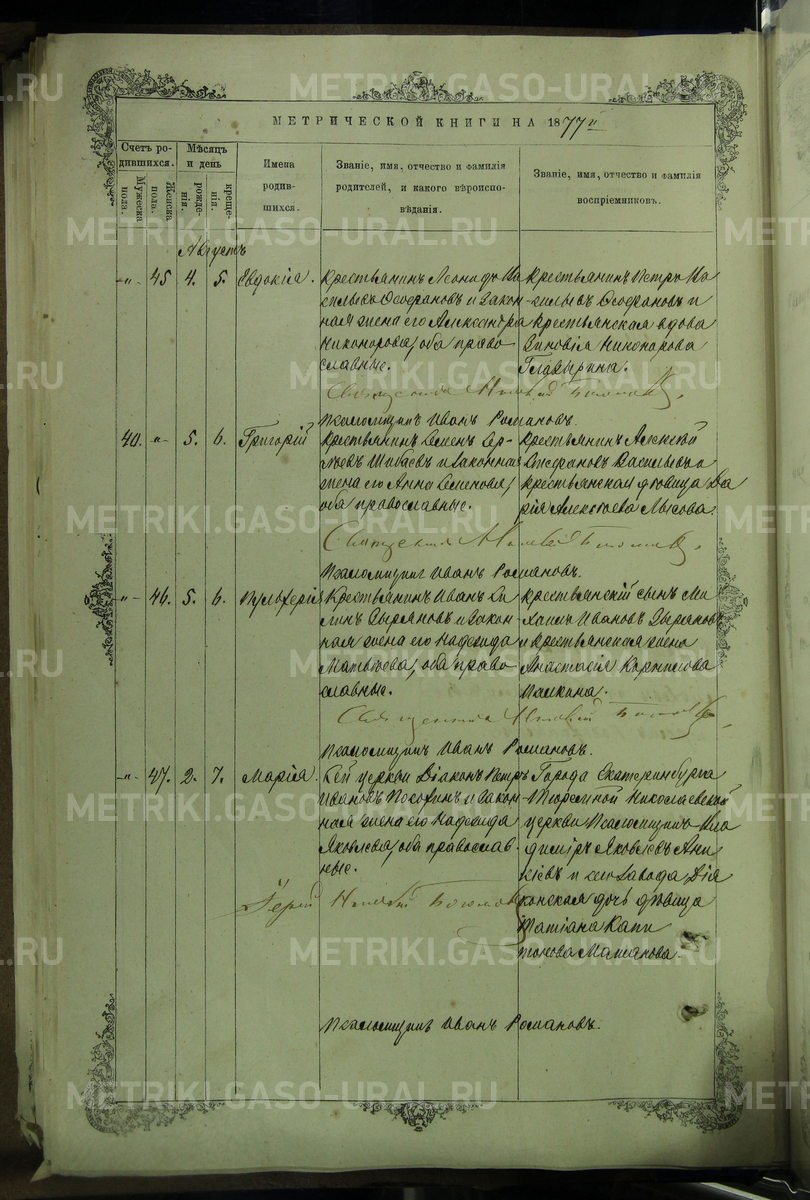 МЕТРИЧЕСКОЙ КНИГИ НА 1877й
Счетъ родившихся.
Мужеска пола.
Женска пола.
Мѣсяцъ и день
рожденія.
крещенія.
Имена родившихся.
Званіе, имя, отчество и фамилія родителей, и какого вѣроисповѣданія.
Званіе, имя, отчество и фамилія воспріемниковъ.
Августъ
-„- 45 4. 5. Евдокія.
Крестьянинъ Леонидъ Ва
сильевъ Ѳеофановъ и закон-
ная жена его Александра
Никонорова, оба право
славные.
Крестьянинъ Петръ Ва
сильевъ Ѳеофановъ и
крестьянская вдова
Зиновія Никонорова
Глазырина.
Священникъ
Псаломщикъ Иванъ Романовъ.
40. -„- 5. 6. Григорій
Крестьянинъ Семенъ Сер-
гѣевъ Шабаевъ и законная
жена его Анна Семенова,
оба православные.
Крестьянинъ Алексѣй
Стефановъ Васильевъ и
крестьянская дѣвица Да
рія Алексѣева Лысова.
Священникъ
Псаломщикъ Иванъ Романовъ.
-„- 46. 5. 6. Пульхерія
Крестьянинъ Иванъ
Зыряновъ и закон-
ная жена его Надежда
Матвѣева, оба право
славные.
Крестьянскій сынъ Ми
хаилъ Ивановъ Зыряновъ
и крестьянская жена
Анастасія Корнилова
Палкина.
Священникъ
Псаломщикъ Иванъ Романовъ.
-„- 47. 2. 7. Марія.
Сей церкви Діаконъ Петръ
Ивановъ и закон
ная жена его Надежда
Яковлева, оба православ-
ные.
Города Екатеринбурга
Тюремной Николаевской
церкви Псаломщикъ Вла
димиръ Яковлевъ Ани
кіевъ и сего завода Діа
конская дочь дѣвица
Татіана Капи
тонова
Іерей
Псаломщикъ Иванъ Романовъ.
METRIKI.GASO-URAL.RU